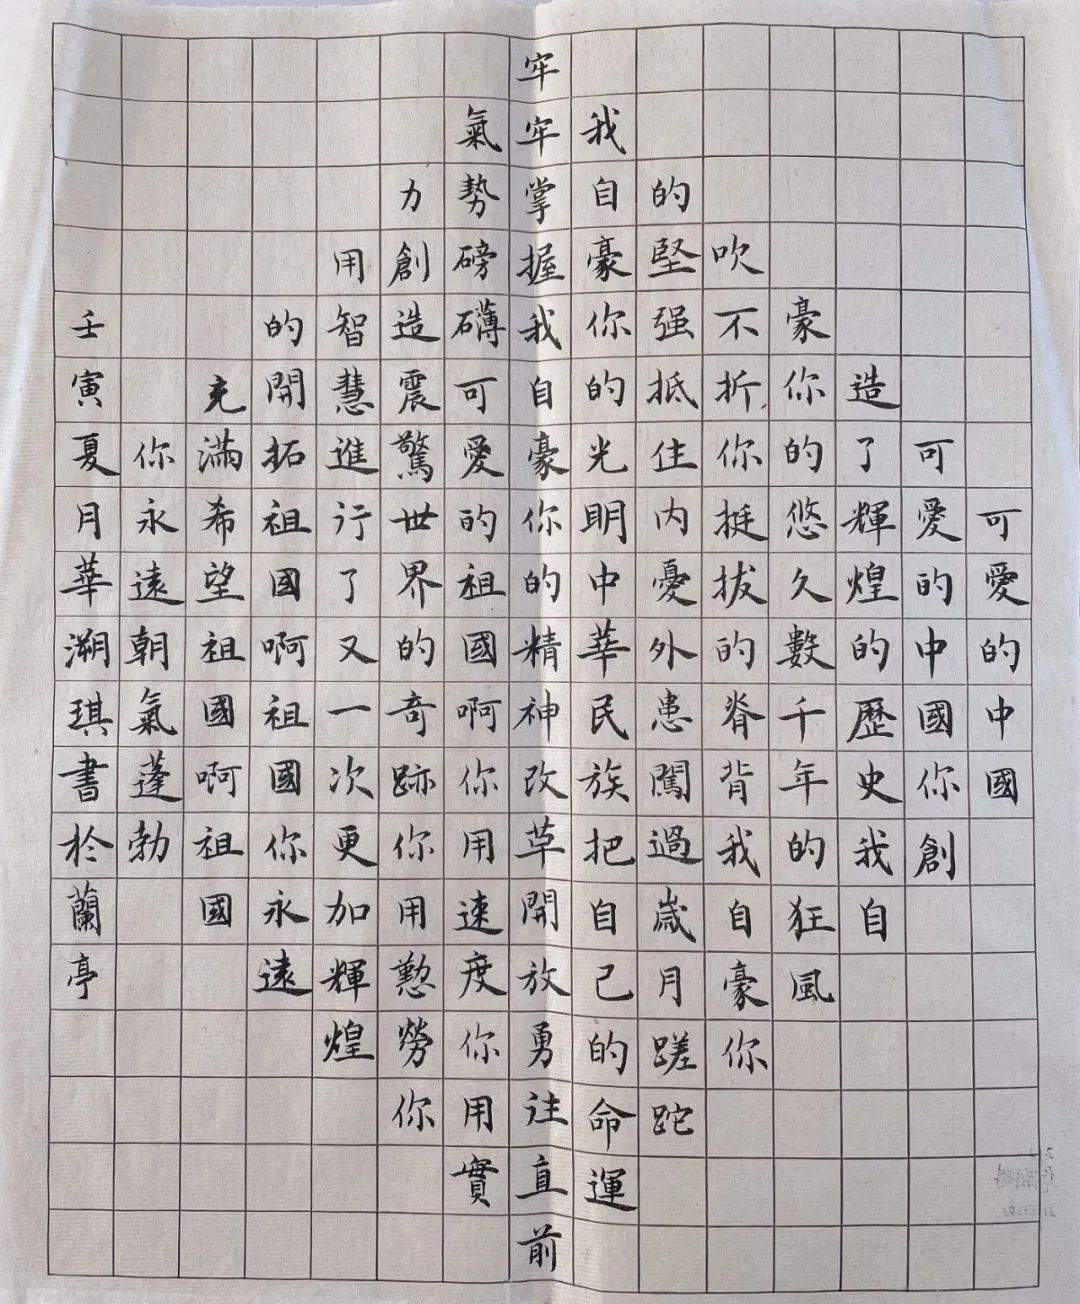 可愛的中國
可愛的中國你創
造了輝煌的歷史我自
豪你的悠久數千年的狂風
吹不折你挺拔的脊背我自豪你
的堅强抵住內憂外患闖過歲月蹉跎
我自豪你的光明中華民族把自己的命運
牢牢掌握我自豪你的精神改革開放勇往直前
氣勢磅礴可愛的祖國啊你用速度你用實
力創造震驚世界的奇跡你用懃勞你
用智慧進行了又一次更加輝煌
的開拓祖國啊祖國你永遠
充滿希望祖國啊祖國
你永遠朝氣蓬勃
壬寅夏月華溯琪書於蘭亭